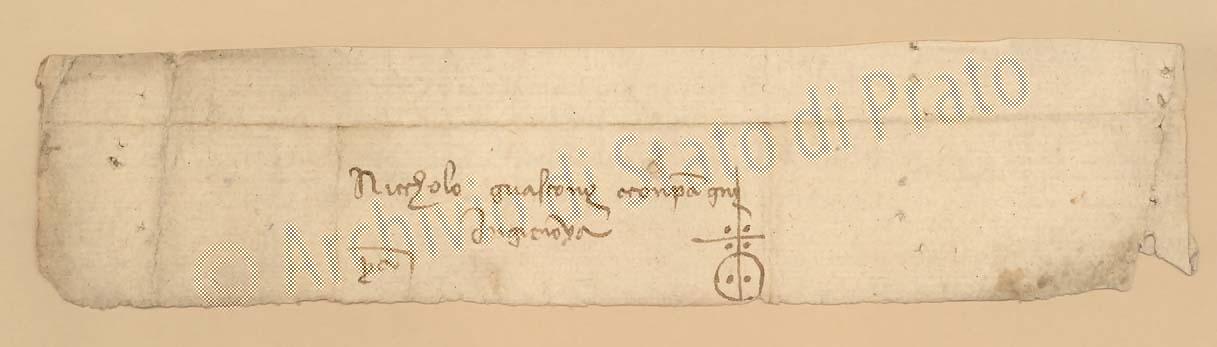 Niccholo guasconi e conpagni
in gienova
© Archivio di Stato di Prato